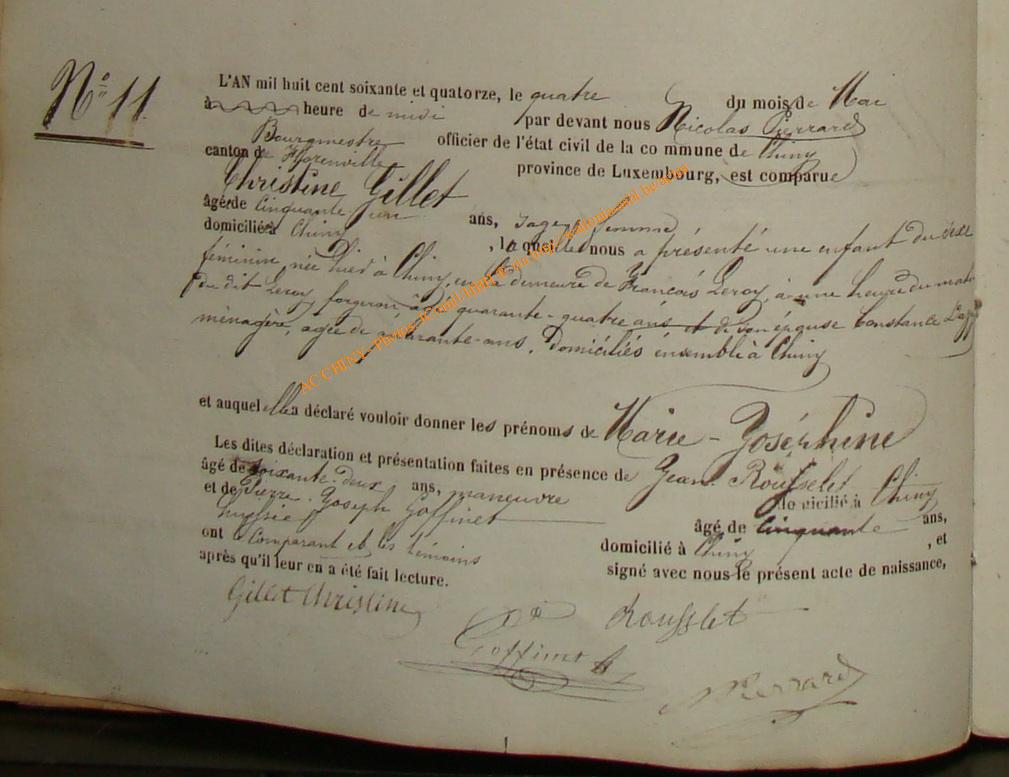 N° 11.
L'AN mil huit cent soixante et quatorze, le quatre du mois de Mai
à heure de midi par devant nous Nicolas Pierrard
Bourgmestre officier de l'état civil de la commune de Chiny
canton de Florenville province de Luxembourg, est comparue
Christine Gillet
âgée de cinquante un ans, sage-femme
domiciliée à Chiny, laquelle nous a présenté une enfant du sexe
féminin, née hier à Chiny, en la demeure de François Leroy, à une heure du matin
du dit Leroy, forgeron âgé quarante-quatre ans et de son épouse Constance
ménagère, agée de quarante-ans, domiciliés ensemble à Chiny
et auquel elle a déclaré vouloir donner les prénoms de Marie-Joséphine
Les dites déclaration et présentation faites en présence de Jean Rousselet
âgé de soixante-deux ans, maneuvre domicilié à Chiny
et de Pierre-Joseph Goffinet
âgé de cinquante ans,
domicilié à Chiny, et
ont le Comparant et les témoins signé avec nous le présent acte de naissance,
après qu'il leur en a été fait lecture.
Gillet Christine
Rousslet
Goffinet
N Pierrard